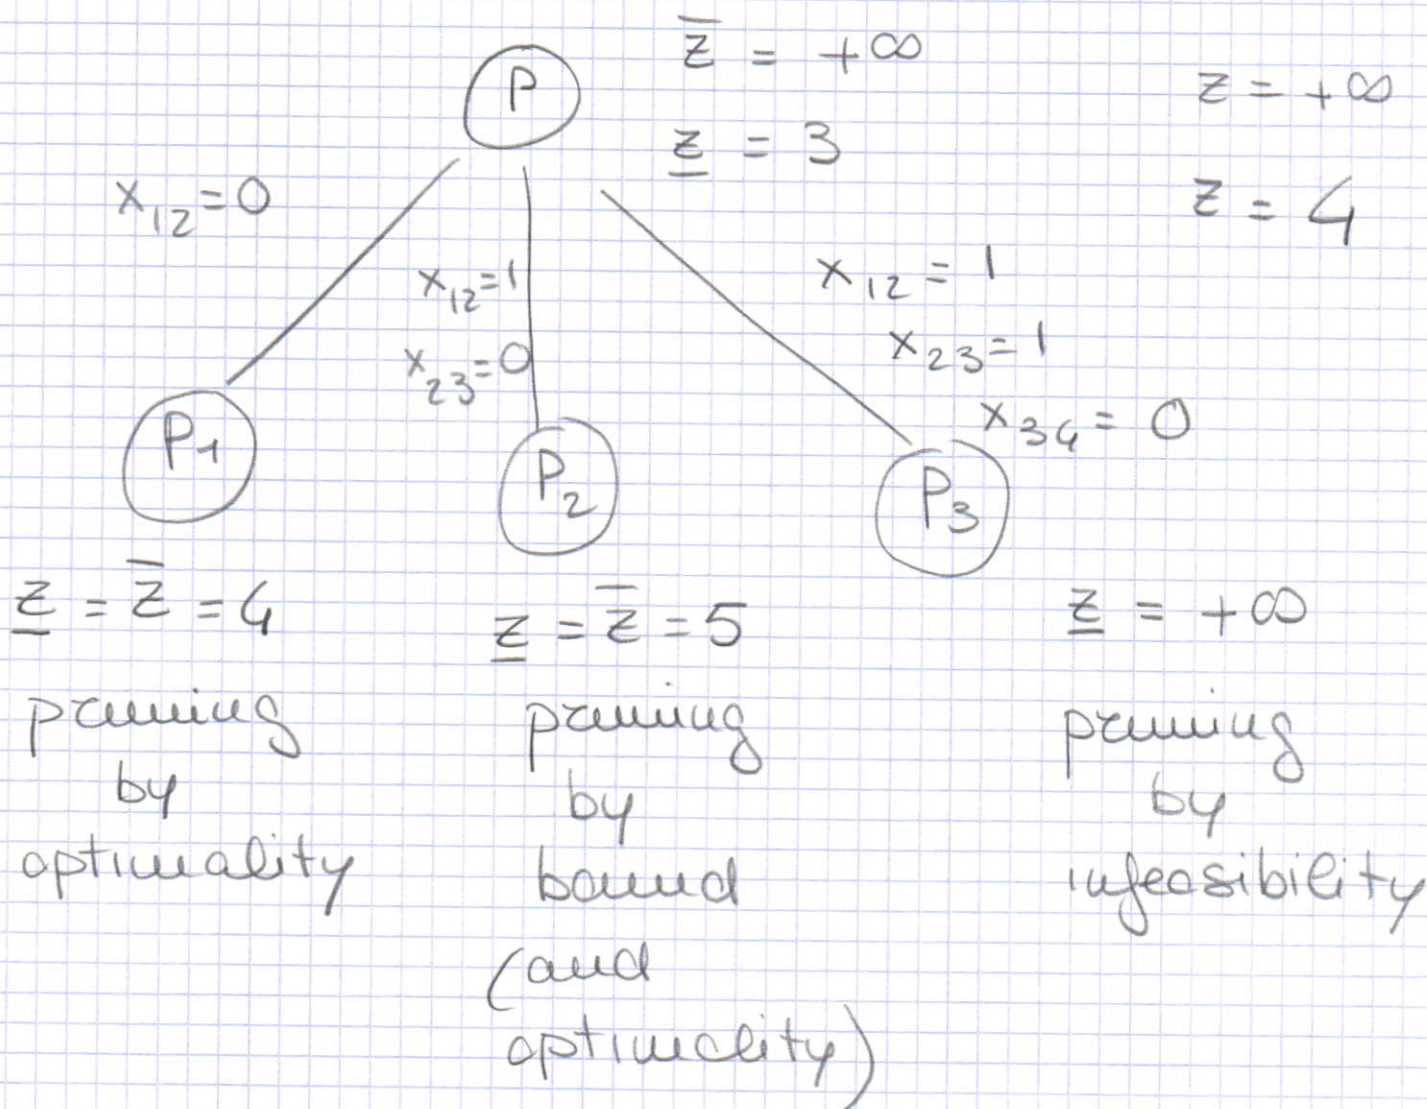 P
z̅ = +∞
z̲ = 3
z = +∞
z = 4
x₁₂=0
x₁₂=1
x₂₃=0
x₁₂ = 1
x₂₃=1
x₃₄= 0
P₁
P₂
P₃
z̲ = z̅ =4
pruning
by
optimality
z̲ = z̅ =5
pruning
by
bound
(and
optimality)
z̲ = +∞
pruning
by
infeasibility